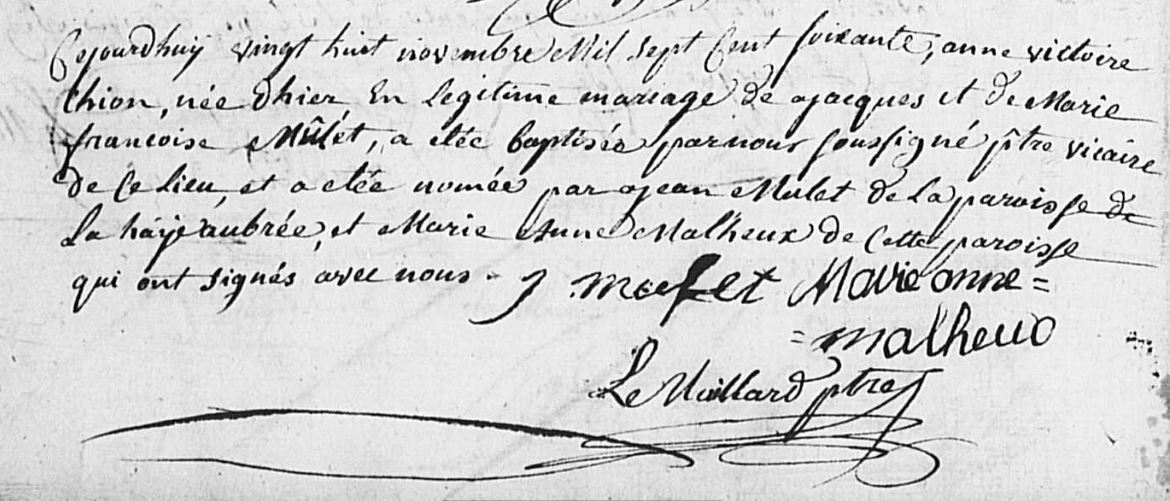 Cejourdhuy vingt huit novembre Mil sept Cent soixante, anne victoire
Chion, née d'hier En legitime mariage de Jacques et de Marie
francoise Mûlet, a etée baptisée par nous soussigné ptre vicaire
de ce Lieu, et a etée nomée par Jean Mulet de La paroisse de
La haÿe aubrée, et Marie Anne Malheux de cette paroisse
qui ont signés avec nous. J mulet Marie anne=
=malheux
Le ptre